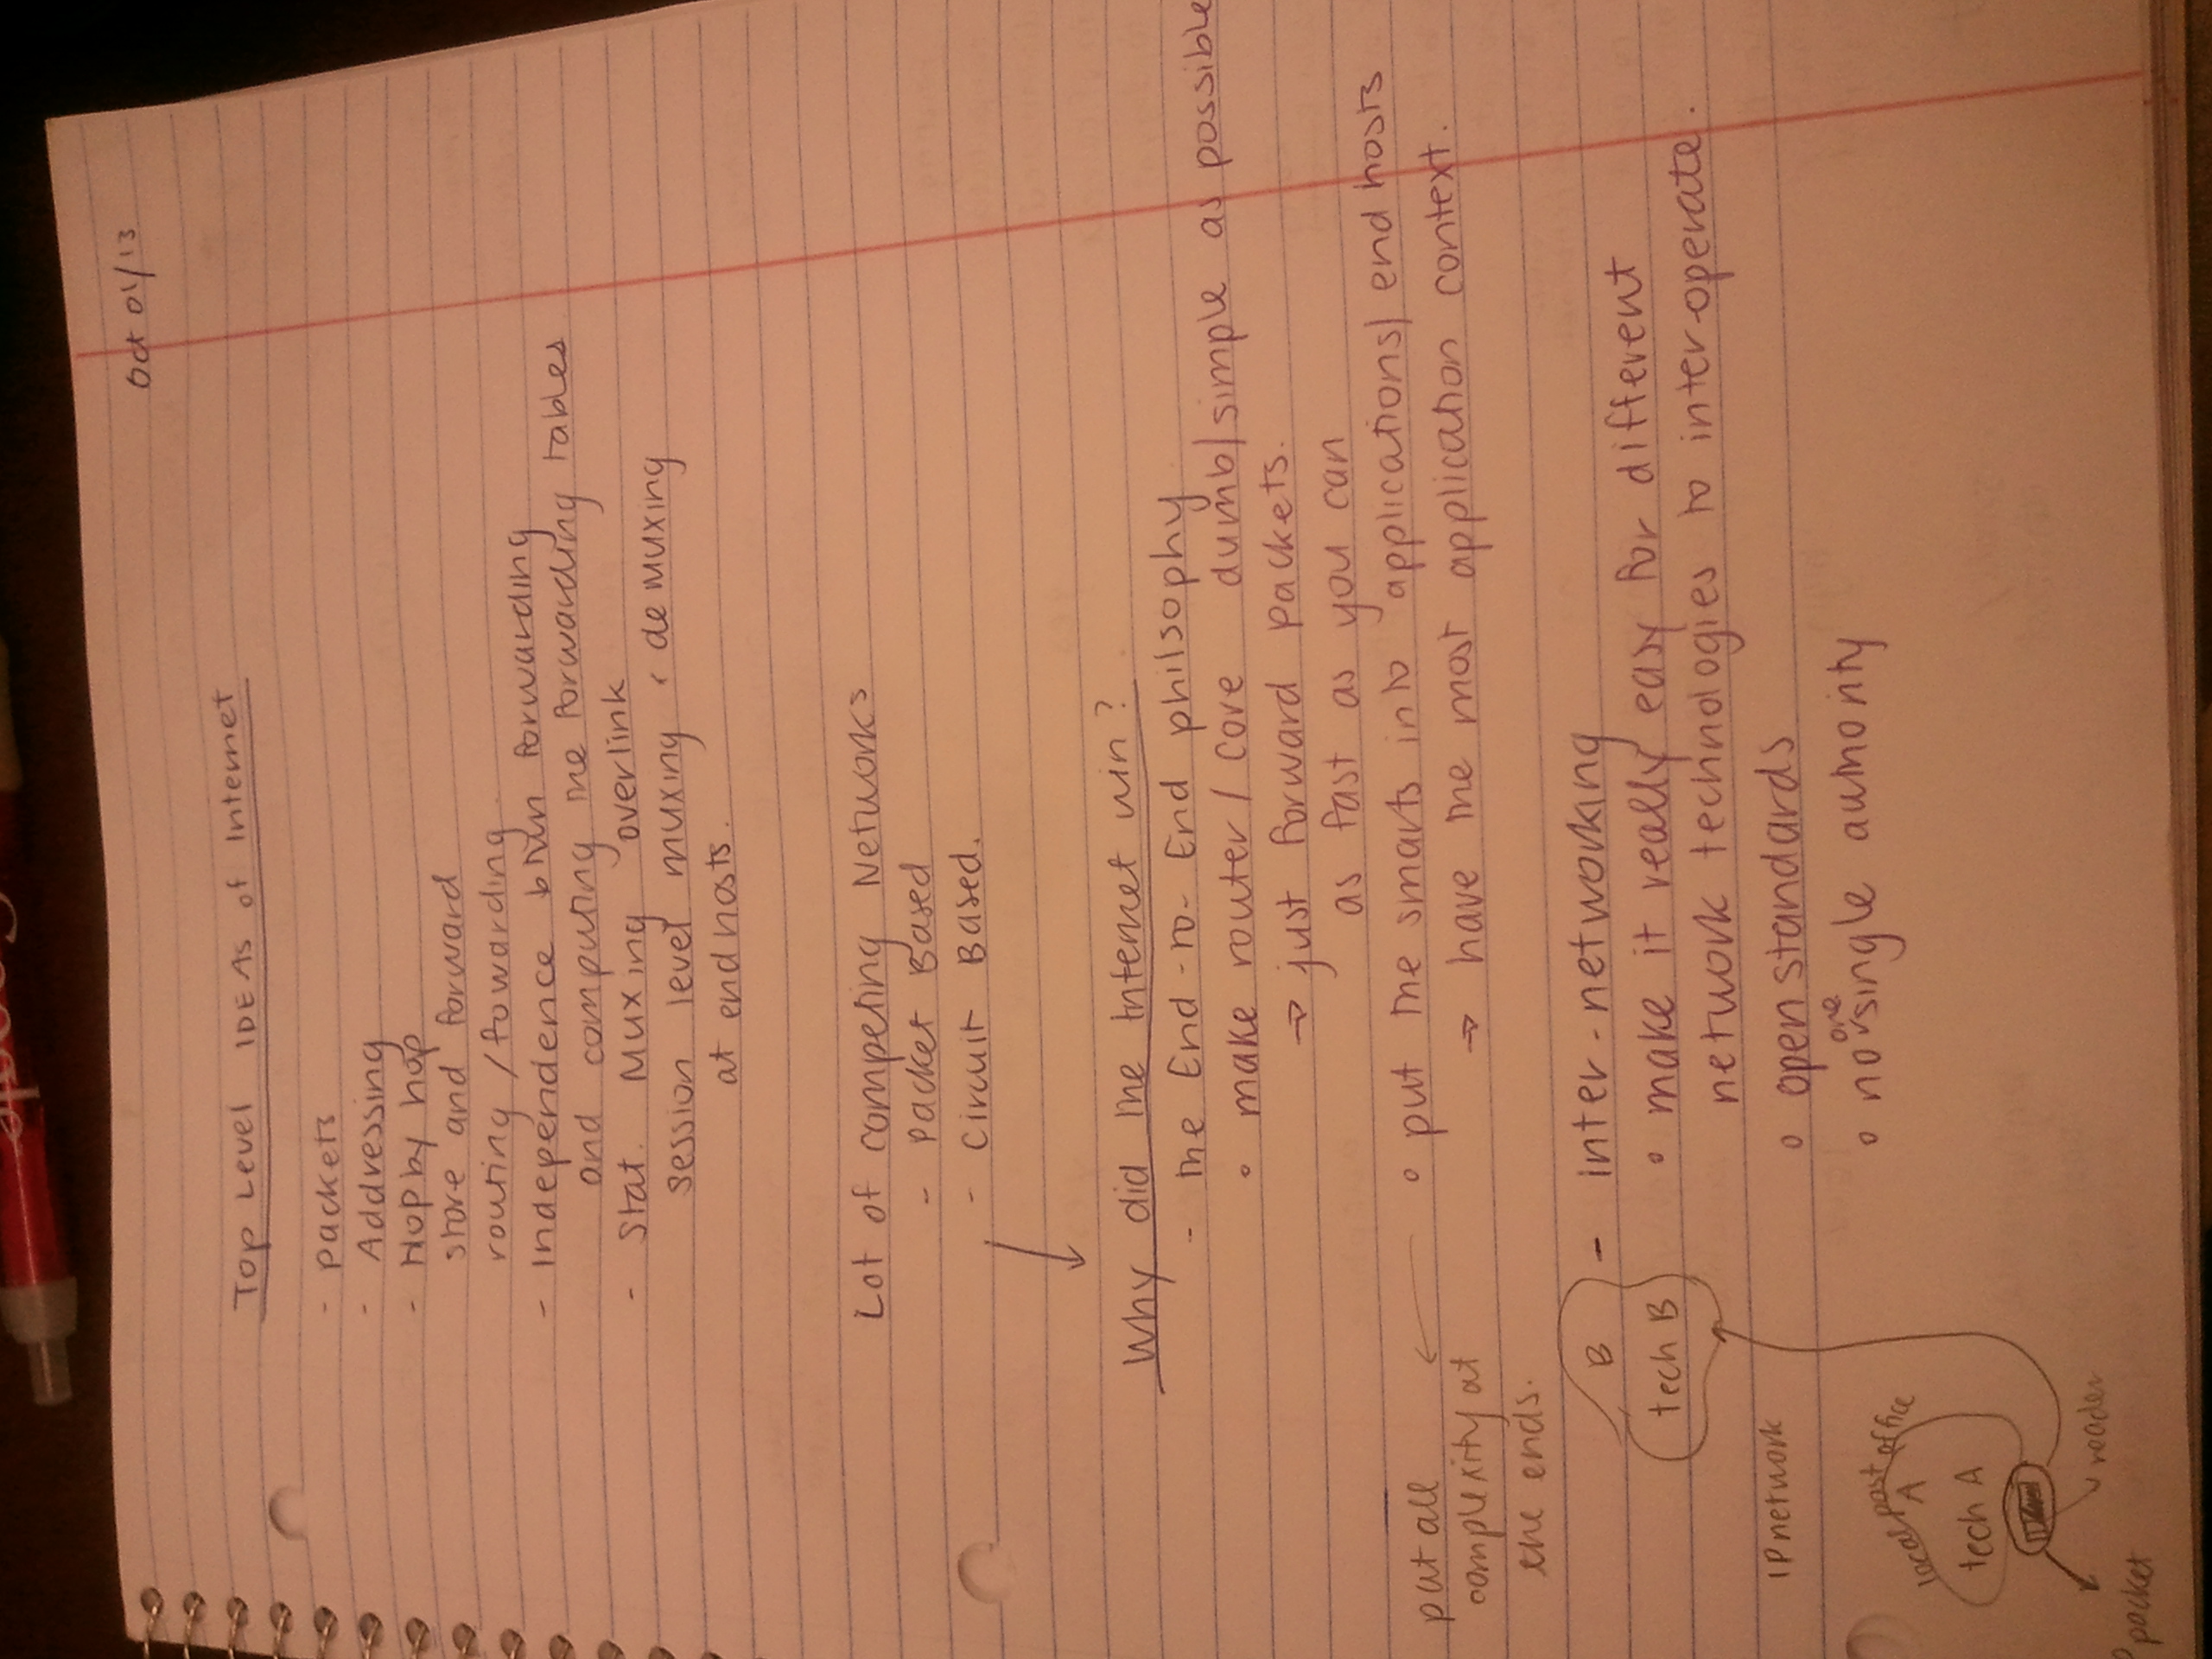 Google
Oct 01/13
Top Level IDEAs of Internet
- packets
- Addressing
- Hop by hop
store and forward
routing / fowarding
- Independence btwn forwarding
and computing the forwarding tables
- Stat. Muxing over link
session level muxing & demuxing
at end hosts.
Lot of competing Networks
- Packet Based
- Circuit Based.
Why did the Internet win?
- the End-to-End philsophy
• make router / core dumb/simple as possible
→ just forward packets.
as fast as you can
• put the smarts into applications/ end hosts
→ have the most application context.
put all
complexity at
the ends.
B
tech B
- inter-networking
• make it really easy for different
network technologies to inter-operate.
• open standards
• no one single authority
IP network
local post office
A
tech A
packet